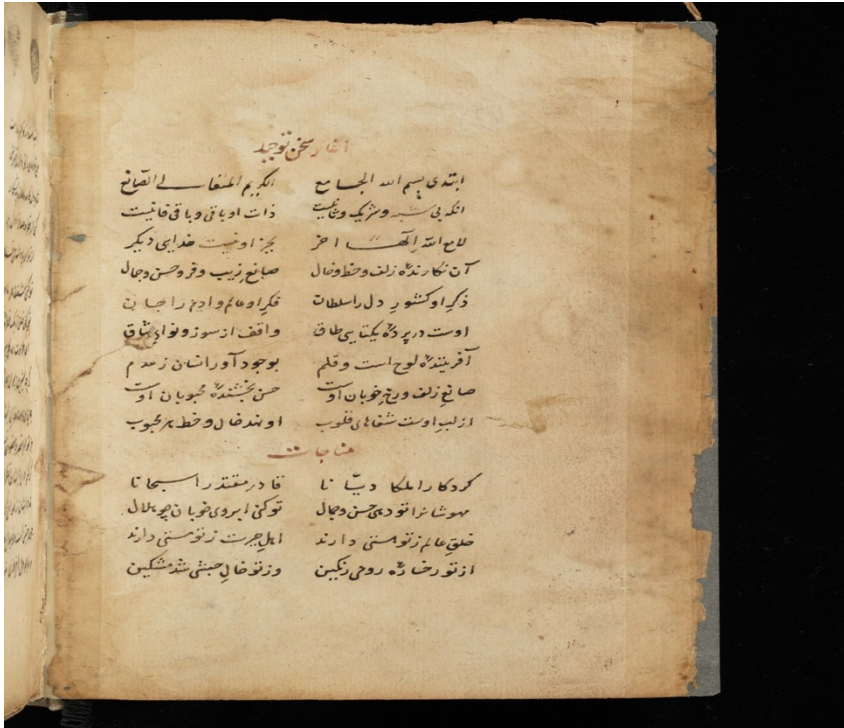 آغاز سخن توحید
ابتدی بسم الله الجامع الکریم المتعالی الصانع
آنکه بی شبه و شریک و ثانیست ذات او باقی و باقی فانیست
لا مع الله الها آخر بجز او نیست خدایی دیگر
آن نکارندهٔ زلف و خط و خال صانع زیب و فر و حسن و جمال
ذکر او کشور دل را سلطان فکر او عالم و آدم را جان
اوست در پردهٔ یکتایی طاق واقف از سوز و نوای عشاق
آفرینندهٔ لوح است و قلم بوجود آور انسان ز عدم
صانع زلف و رخ خوبان اوست حسن بخشندهٔ محبوبان اوست
از لب اوست شفاهای قلوب او نهد خال و خط بر محبوب
مناجات
کردکارا ملکا دیّانا قادر مقتدرا سبحانا
مهوشانرا تو دهی حسن و جمال تو کنی ابروی خوبان چو هلال
خلق عالم ز تو هستی دارند اهل حیرت ز تو مستی دارند
از تو رخسارهٔ رومی رنکین وز تو خال حبشی شد مشکین